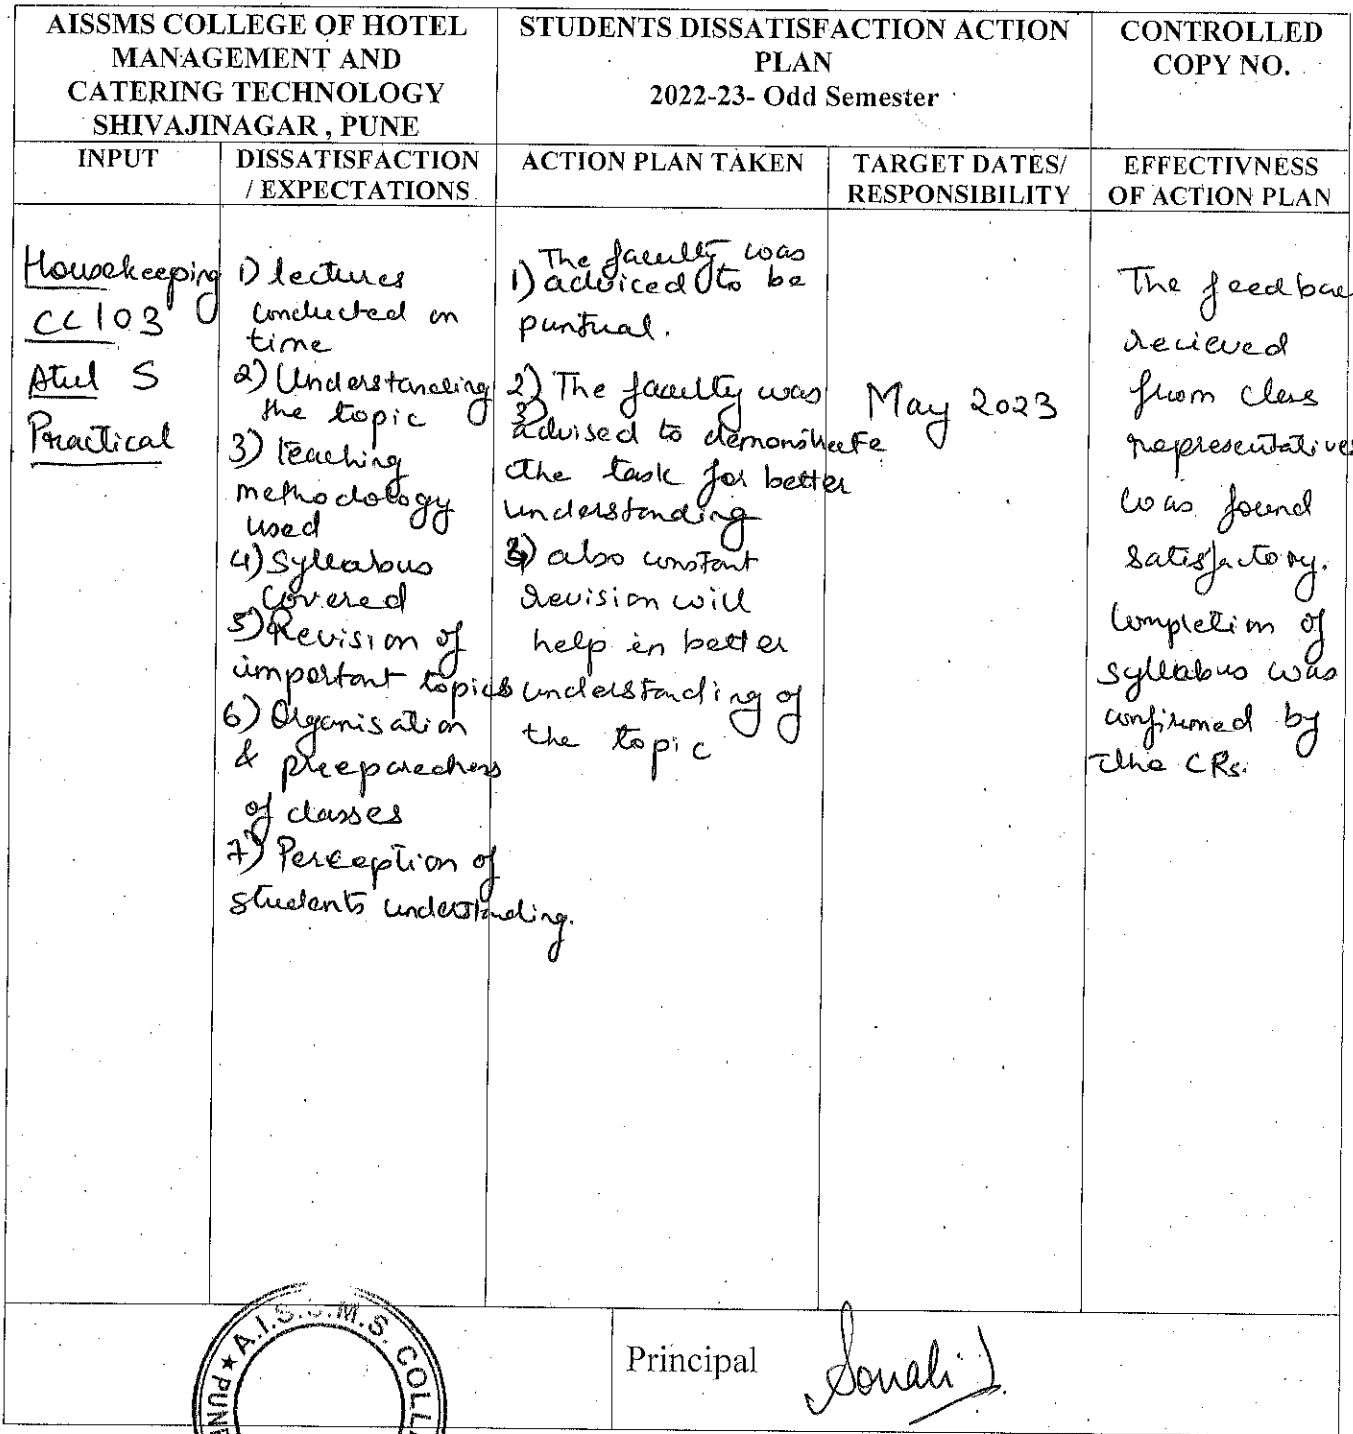 AISSMS COLLEGE OF HOTEL
MANAGEMENT AND
CATERING TECHNOLOGY
SHIVAJINAGAR , PUNE
STUDENTS DISSATISFACTION ACTION
PLAN
2022-23- Odd Semester
CONTROLLED
COPY NO.
INPUT
DISSATISFACTION
/ EXPECTATIONS
ACTION PLAN TAKEN
TARGET DATES/
RESPONSIBILITY
EFFECTIVNESS
OF ACTION PLAN
Housekeeping
CC103
Atul S
Practical
1) lectures
conducted on
time
2) Understanding
the topic
3) teaching
methodology
used
4) Syllabus
covered
5) Revision of
important topics
6) Organisation
& preeparedness
of classes
7) Perception of
students understanding.
The faculty was
1) adviced to be
puntual.
2) The faculty was
3) advised to demonstrate
the task for better
understanding
4) also constant
revision will
help in better
understanding of
the topic
May 2023
The feedbac
recieved
from class
representatives
was found
satisfactory.
Completion of
syllabus was
confirmed by
the CRs.
A.I.S.S.M.S. COLL
PUNE
Principal
Sonali J.